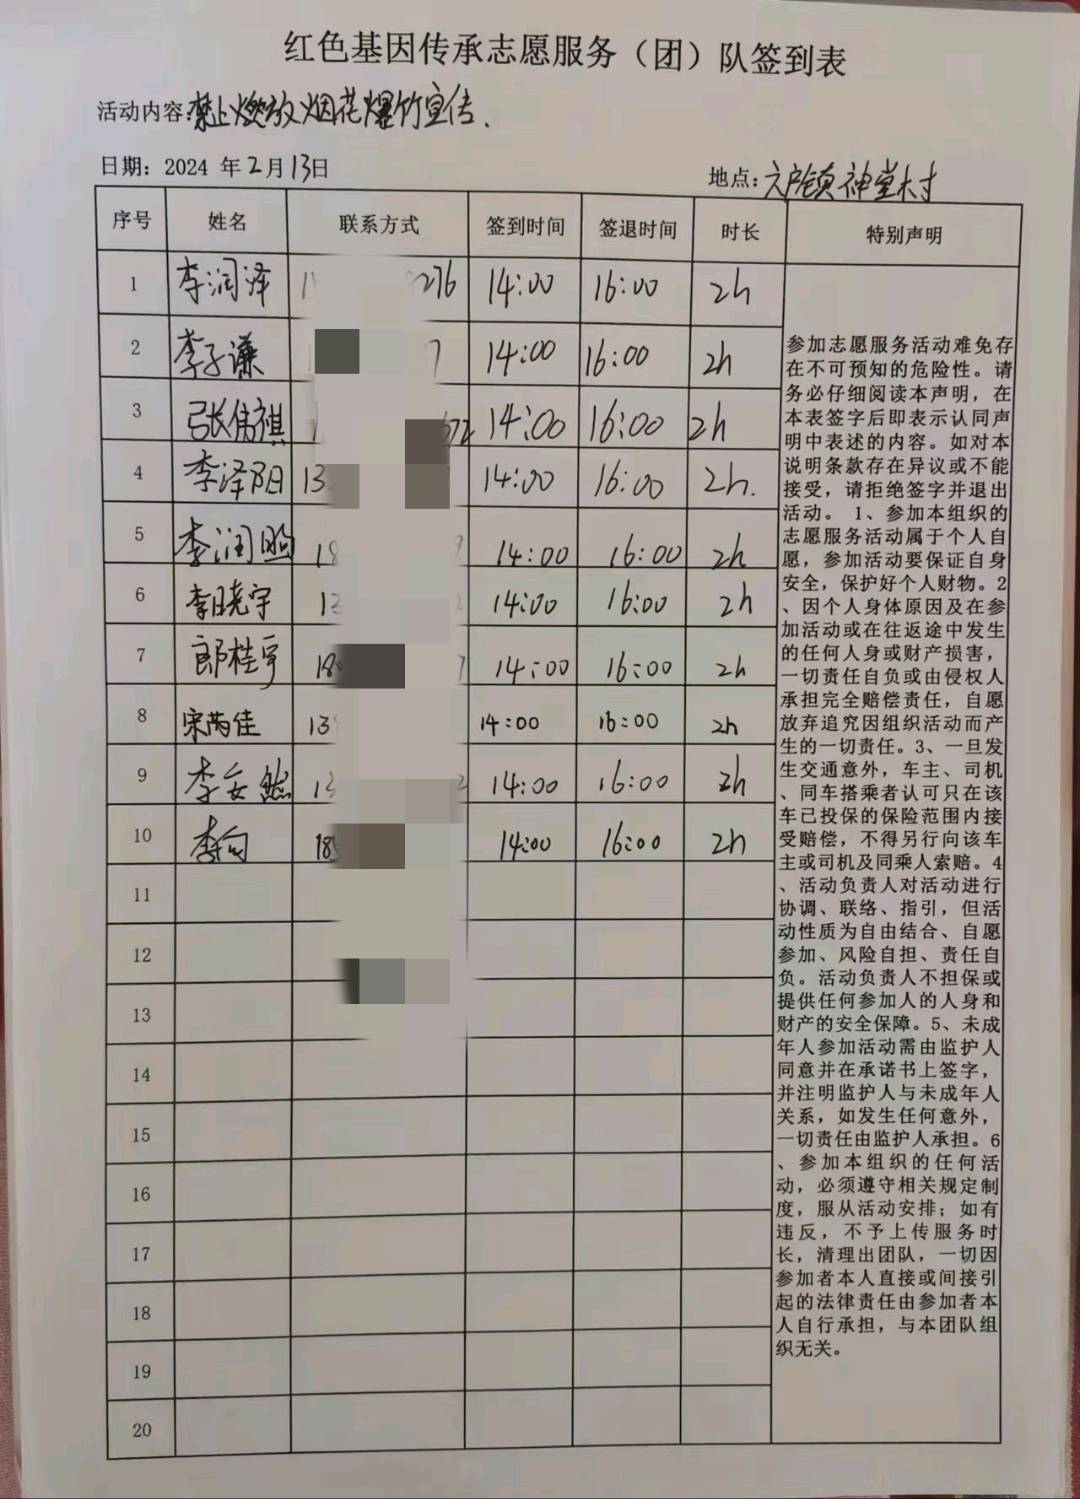 红色基因传承志愿服务（团）队签到表
活动内容:禁止燃放烟花爆竹宣传、
日期：2024 年2月13日
地点:六户镇神堂村
序号 姓名 联系方式 签到时间 签退时间 时长 特别声明
1 李润泽 276 14:00 16:00 2h
2 李子谦 14:00 16:00 2h
3 张倩祺 672 14:00 16:00 2h
4 李泽阳 13 14:00 16:00 2h.
5 李润照 18 9 14:00 16:00 2h
6 李晓宇 13 14:00 16:00 2h
7 郎桂宇 180 14:00 16:00 2h
8 宋芮佳 13 14:00 16:00 2h
9 李安然 13 14:00 16:00 2h
10 李向 185 14:00 16:00 2h
11
12
13
14
15
16
17
18
19
20
参加志愿服务活动难免存
在不可预知的危险性。请
务必仔细阅读本声明，在
本表签字后即表示认同声
明中表述的内容。如对本
说明条款存在异议或不能
接受，请拒绝签字并退出
活动。 1、参加本组织的
志愿服务活动属于个人自
愿，参加活动要保证自身
安全，保护好个人财物。2
、因个人身体原因及在参
加活动或在往返途中发生
的任何人身或财产损害，
一切责任自负或由侵权人
承担完全赔偿责任，自愿
放弃追究因组织活动而产
生的一切责任。3、一旦发
生交通意外，车主、司机
、同车搭乘者认可只在该
车已投保的保险范围内接
受赔偿，不得另行向该车
主或司机及同乘人索赔。4
、活动负责人对活动进行
协调、联络、指引，但活
动性质为自由结合、自愿
参加、风险自担、责任自
负。活动负责人不担保或
提供任何参加人的人身和
财产的安全保障。5、未成
年人参加活动需由监护人
同意并在承诺书上签字，
并注明监护人与未成年人
关系，如发生任何意外，
一切责任由监护人承担。6
、参加本组织的任何活
动，必须遵守相关规定制
度，服从活动安排；如有
违反，不予上传服务时
长，清理出团队，一切因
参加者本人直接或间接引
起的法律责任由参加者本
人自行承担，与本团队组
织无关。